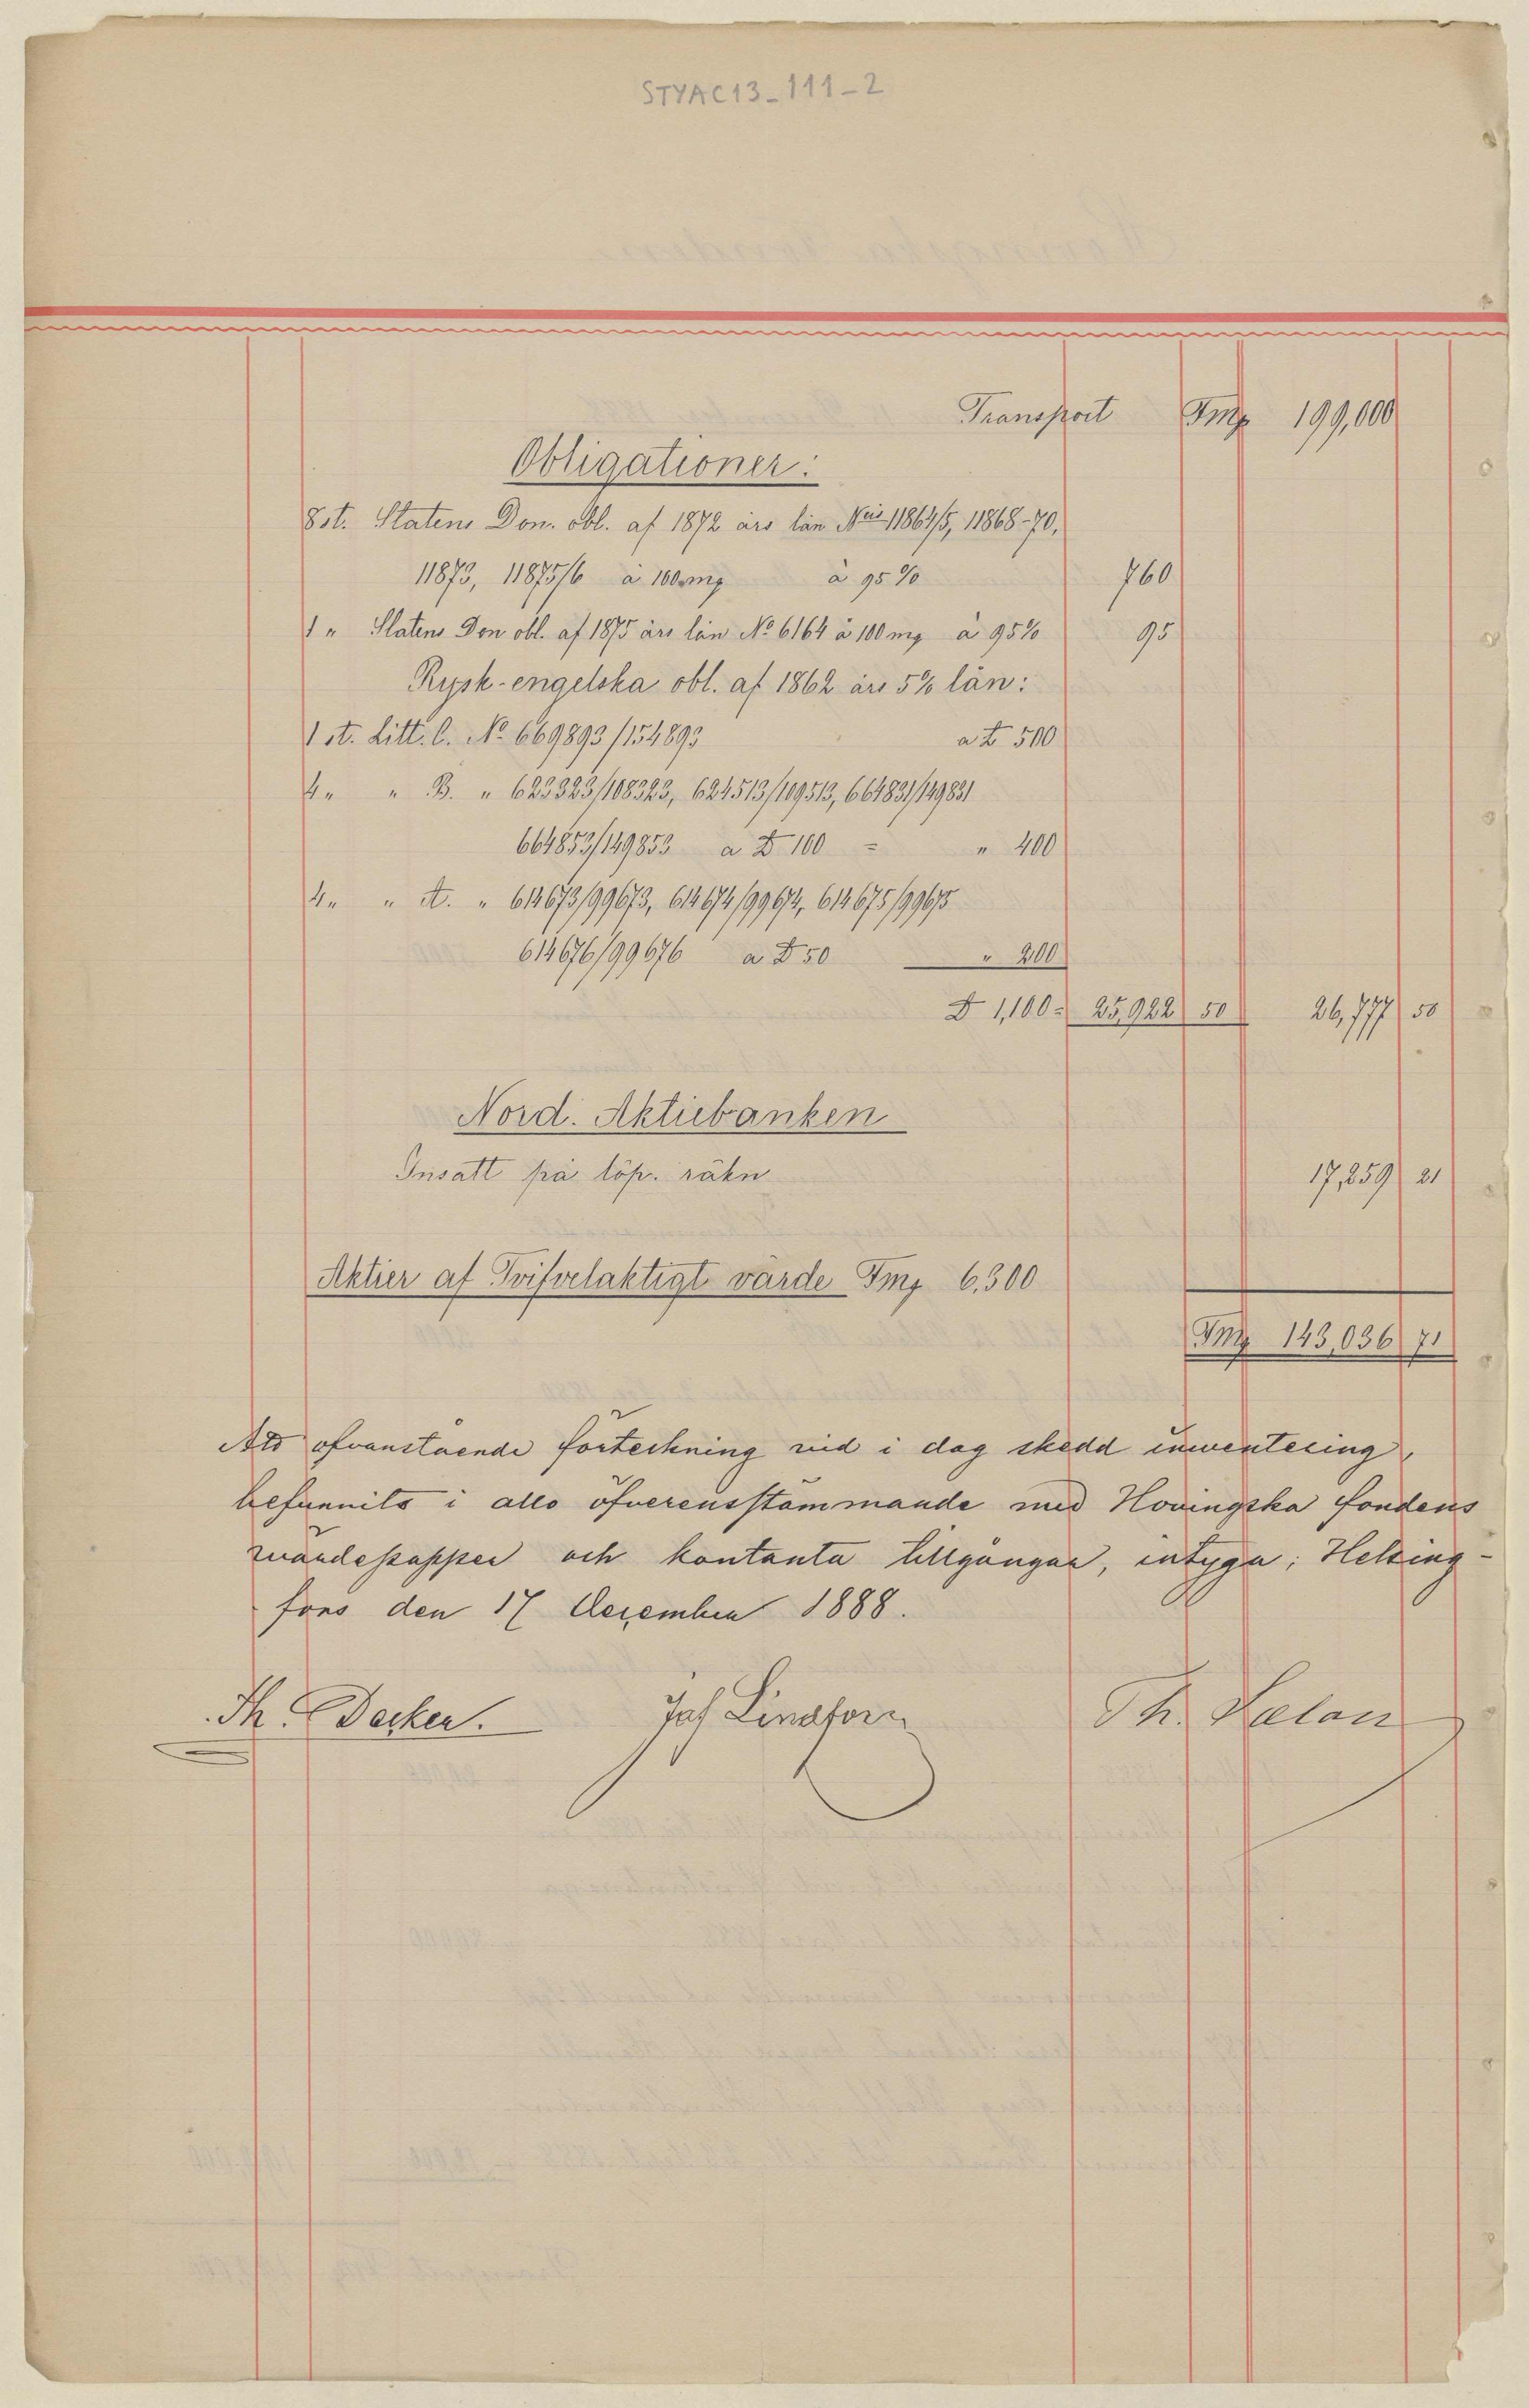 STYAC13_111-2
Transport Fmg 199,000
Obligationer:
8 st. Statens Don. obl. af 1872 års lån Nris 11864/5, 11868-70,
11873, 11875/6 à 100 mg à 95% 760
1 " Statens Don obl. af 1875 års lån No 6164 à 100 mg à 95% 95
Rysk-engelska obl. af 1862 års 5% lån:
1 st. Litt. C. No 669893/154893 a £ 500
4 " " B. " 623323/108323, 624513/109513, 664831/149831
664853/149853 a £ 100 = " 400
4 " " A. " 614673/99673, 614674/99674, 614675/99675
614676/99676 a £ 50 " 200
£ 1,100 = 25,922 50 26,777 50
Nord. Aktiebanken
Insatt på löp. räkn 17,259 21
Aktier af Tvifvelaktigt värde Fmg 6,300
Fmg 143,036 71
Att ofvanstående förteckning vid i dag skedd inventering,
befunnits i allo öfverensstämmande med Hovingska fondens
värdepapper och kontanta tillgångar, intyga; Helsing-
fors den 17 December 1888.
Th. Decker. Jac Lindfors Th. Sælan